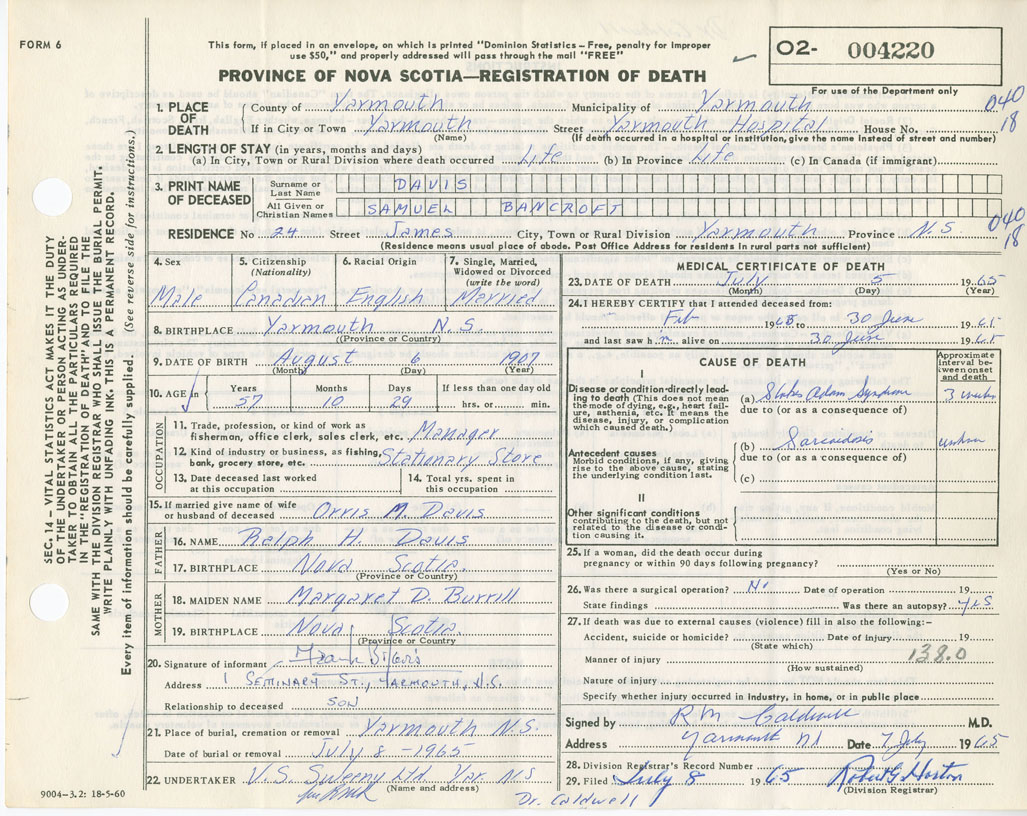 FORM 6
This form, if placed in an envelope, on which is printed "Dominion Statistics – Free, penalty for improper
use $50," and properly addressed will pass through the mail "FREE"
O2- 004220
PROVINCE OF NOVA SCOTIA—REGISTRATION OF DEATH
For use of the Department only
040
18
1. PLACE OF DEATH
County of Yarmouth Municipality of Yarmouth
If in City or Town Yarmouth Street Yarmouth Hospital House No.
(Name) (If death occurred in a hospital or institution, give the name instead of street and number)
2. LENGTH OF STAY (in years, months and days)
(a) In City, Town or Rural Division where death occurred Life (b) In Province Life (c) In Canada (if immigrant)
3. PRINT NAME OF DECEASED
Surname or Last Name DAVIS
All Given or Christian Names SAMUEL BANCROFT
040
18
RESIDENCE No 24 Street James City, Town or Rural Division Yarmouth Province N.S.
(Residence means usual place of abode. Post Office Address for residents in rural parts not sufficient)
4. Sex Male
5. Citizenship (Nationality) Canadian
6. Racial Origin English
7. Single, Married, Widowed or Divorced (write the word) Married
8. BIRTHPLACE Yarmouth N.S.
(Province or Country)
9. DATE OF BIRTH August 6 1907
(Month) (Day) (Year)
10. AGE in Years 57 Months 10 Days 29 If less than one day old hrs. or min.
OCCUPATION
11. Trade, profession, or kind of work as
fisherman, office clerk, sales clerk, etc. Manager
12. Kind of industry or business, as fishing,
bank, grocery store, etc. Stationary Store
13. Date deceased last worked at this occupation
14. Total yrs. spent in this occupation
15. If married give name of wife
or husband of deceased Orris M. Davis
FATHER
16. NAME Ralph H. Davis
17. BIRTHPLACE Nova Scotia
(Province or Country)
MOTHER
18. MAIDEN NAME Margaret D. Burrill
19. BIRTHPLACE Nova Scotia
(Province or Country)
20. Signature of informant
Address 1 SEMINARY ST., YARMOUTH, N.S.
Relationship to deceased SON
21. Place of burial, cremation or removal Yarmouth N.S.
Date of burial or removal July 8 – 1965
22. UNDERTAKER V.S. Sweeny Ltd. Yar. N.S
(Name and address)
9004-3.2: 18-5-60
Dr. Caldwell
MEDICAL CERTIFICATE OF DEATH
23. DATE OF DEATH July 5 1965
(Month) (Day) (Year)
24. I HEREBY CERTIFY that I attended deceased from:
Feb 19 to 30 June 1965
and last saw h m alive on 30 June 1965
CAUSE OF DEATH
Approximate interval between onset and death
I
Disease or condition directly leading to death (This does not mean the mode of dying, e.g., heart failure, asthenia, etc. It means the disease, injury, or complication which caused death.)
(a) Stokes Adam Syndrome 3 weeks
due to (or as a consequence of)
Antecedent causes
Morbid conditions, if any, giving rise to the above cause, stating the underlying condition last.
(b) Sarcoidosis
due to (or as a consequence of)
(c)
II
Other significant conditions
contributing to the death, but not related to the disease or condition causing it.
25. If a woman, did the death occur during
pregnancy or within 90 days following pregnancy?
(Yes or No)
26. Was there a surgical operation? No Date of operation 19
State findings Was there an autopsy? yes
27. If death was due to external causes (violence) fill in also the following:–
Accident, suicide or homicide? Date of injury 19
(State which)
Manner of injury 138.0
(How sustained)
Nature of injury
Specify whether injury occurred in industry, in home, or in public place
Signed by R M Caldwell M.D.
Address Yarmouth NS Date 7 July 1965
28. Division Registrar's Record Number
29. Filed July 8 1965 Robert G. Horton
(Division Registrar)
SEC. 14 – VITAL STATISTICS ACT MAKES IT THE DUTY
OF THE UNDERTAKER OR PERSON ACTING AS UNDER-
TAKER TO OBTAIN ALL THE PARTICULARS REQUIRED
IN THE "REGISTRATION OF DEATH" AND TO FILE THE
SAME WITH THE DIVISION REGISTRAR WHO SHALL ISSUE THE BURIAL PERMIT.
WRITE PLAINLY WITH UNFADING INK. THIS IS A PERMANENT RECORD.
Every item of information should be carefully supplied. (See reverse side for instructions.)